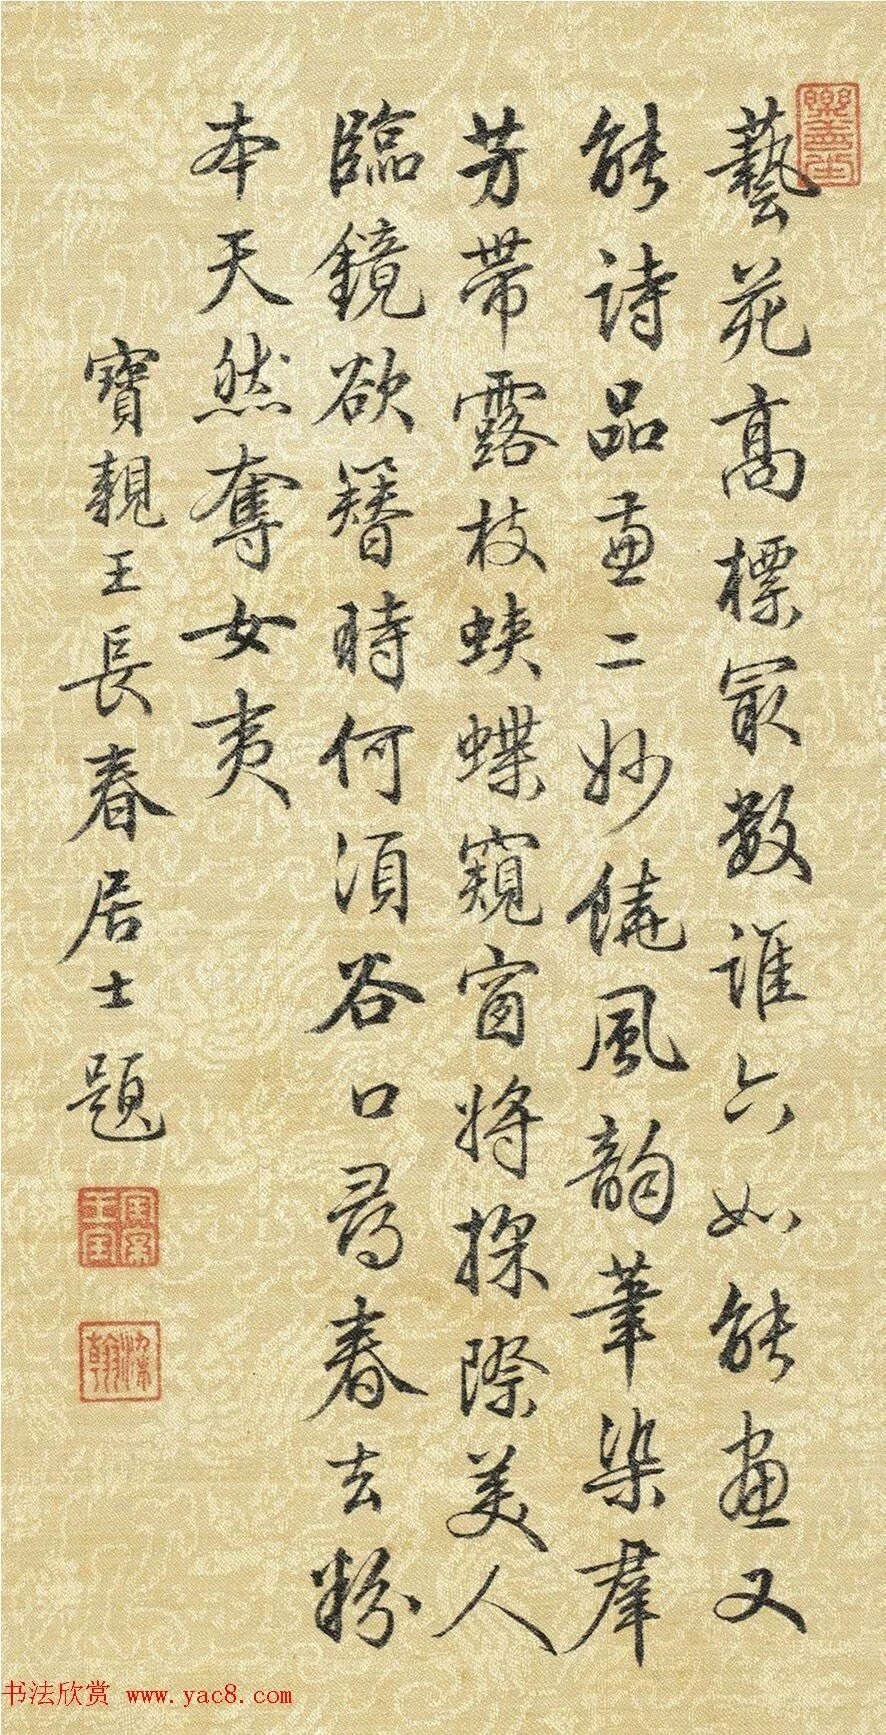 樂善堂
藝苑高標冣數誰六如能畫又
能詩品兼二妙饒風韻筆染羣
芳帶露枝蛺蝶窺窗將探際美人
臨鏡欲簪時何須谷口尋春去粉
本天然奪女夷
寶親王長春居士題
寶親王寶
染翰
书法欣赏 www.yac8.com